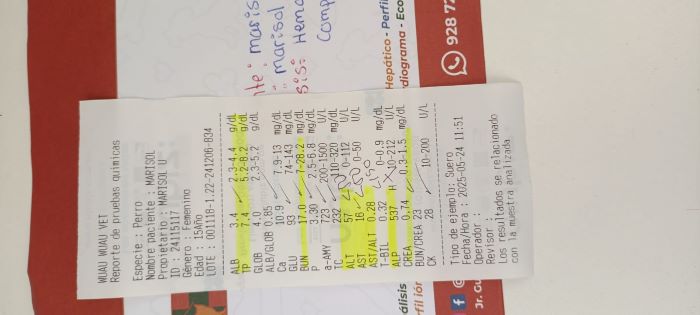 WUAU WUAU VET
Reporte de pruebas químicas
Especie : Perro
Nombre paciente : MARISOL
Propietario : MARISOL U
ID : 24115117
Género : Femenino
Edad : 15Año
LOTE : 001118-1.22-241206-834
ALB 3.4 2.3-4.4 g/dL
TP 7.4 5.2-8.2 g/dL
GLOB 4.0 2.3-5.2 g/dL
ALB/GLOB 0.85
Ca 10.9 7.9-13 mg/dL
GLU 93 74-143 mg/dL
BUN 17.0 7-28.2 mg/dL
P 3.30 2.5-6.8 mg/dL
a-AMY 723 200-1500 U/L
TC 232 110-320 mg/dL
ALT 57 0-112 U/L
AST 16 0-50 U/L
AST/ALT 0.28
T-BIL 0.32 0-0.9 mg/dL
ALP 531 H 10-212 U/L
CREA 0.74 0.3-1.5 mg/dL
BUN/CREA 23
CK 28 10-200 U/L
Tipo de ejemplo: Suero
Fecha/Hora : 2025-05-24 11:51
Operador :
Revisor :
Los resultados se relacionado
con la muestra analizada
nte: maris
marisol
sis: Hemo
Comp
Hepático - Perfil
diograma - Eco
928 72
álisis
fil ión
Jr. Cu